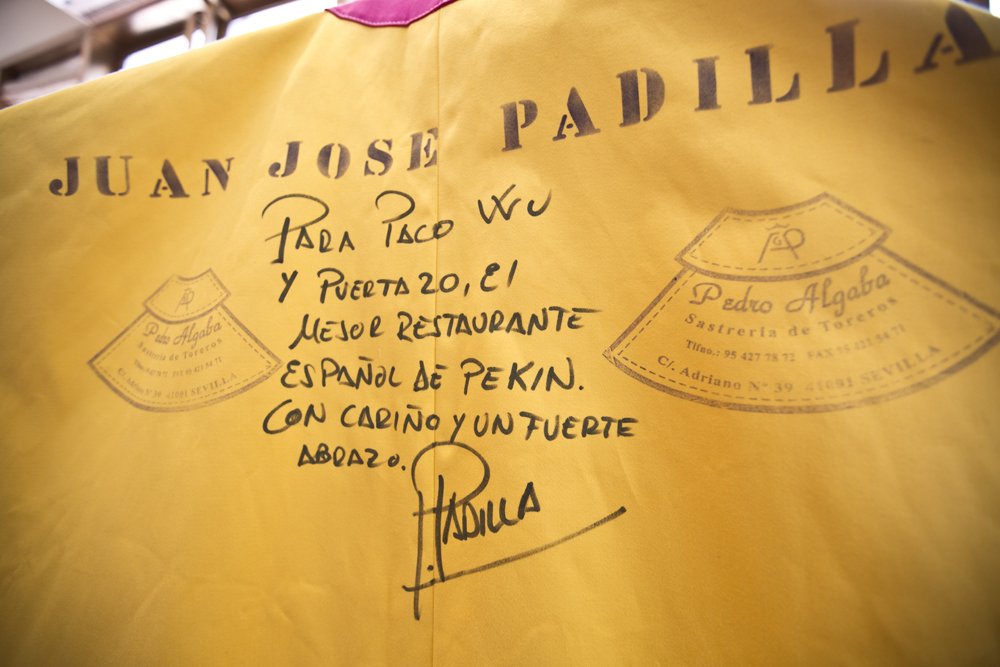 JUAN JOSE PADILLA
PARA PACO WU
Y PUERTA 20, El
MEJOR RESTAURANTE
ESPAÑOL DE PEKIN.
CON CARIÑO Y UN FUERTE
ABRAZO.
PADILLA
Pedro Algaba
Sastrería de Toreros
C/. Adriano Nº 39 41091 SEVILLA
Pedro Algaba
Sastrería de Toreros
Tlfno.: 95 427 78 72 FAX 95 422 94 71
C/. Adriano Nº 39 41091 SEVILLA